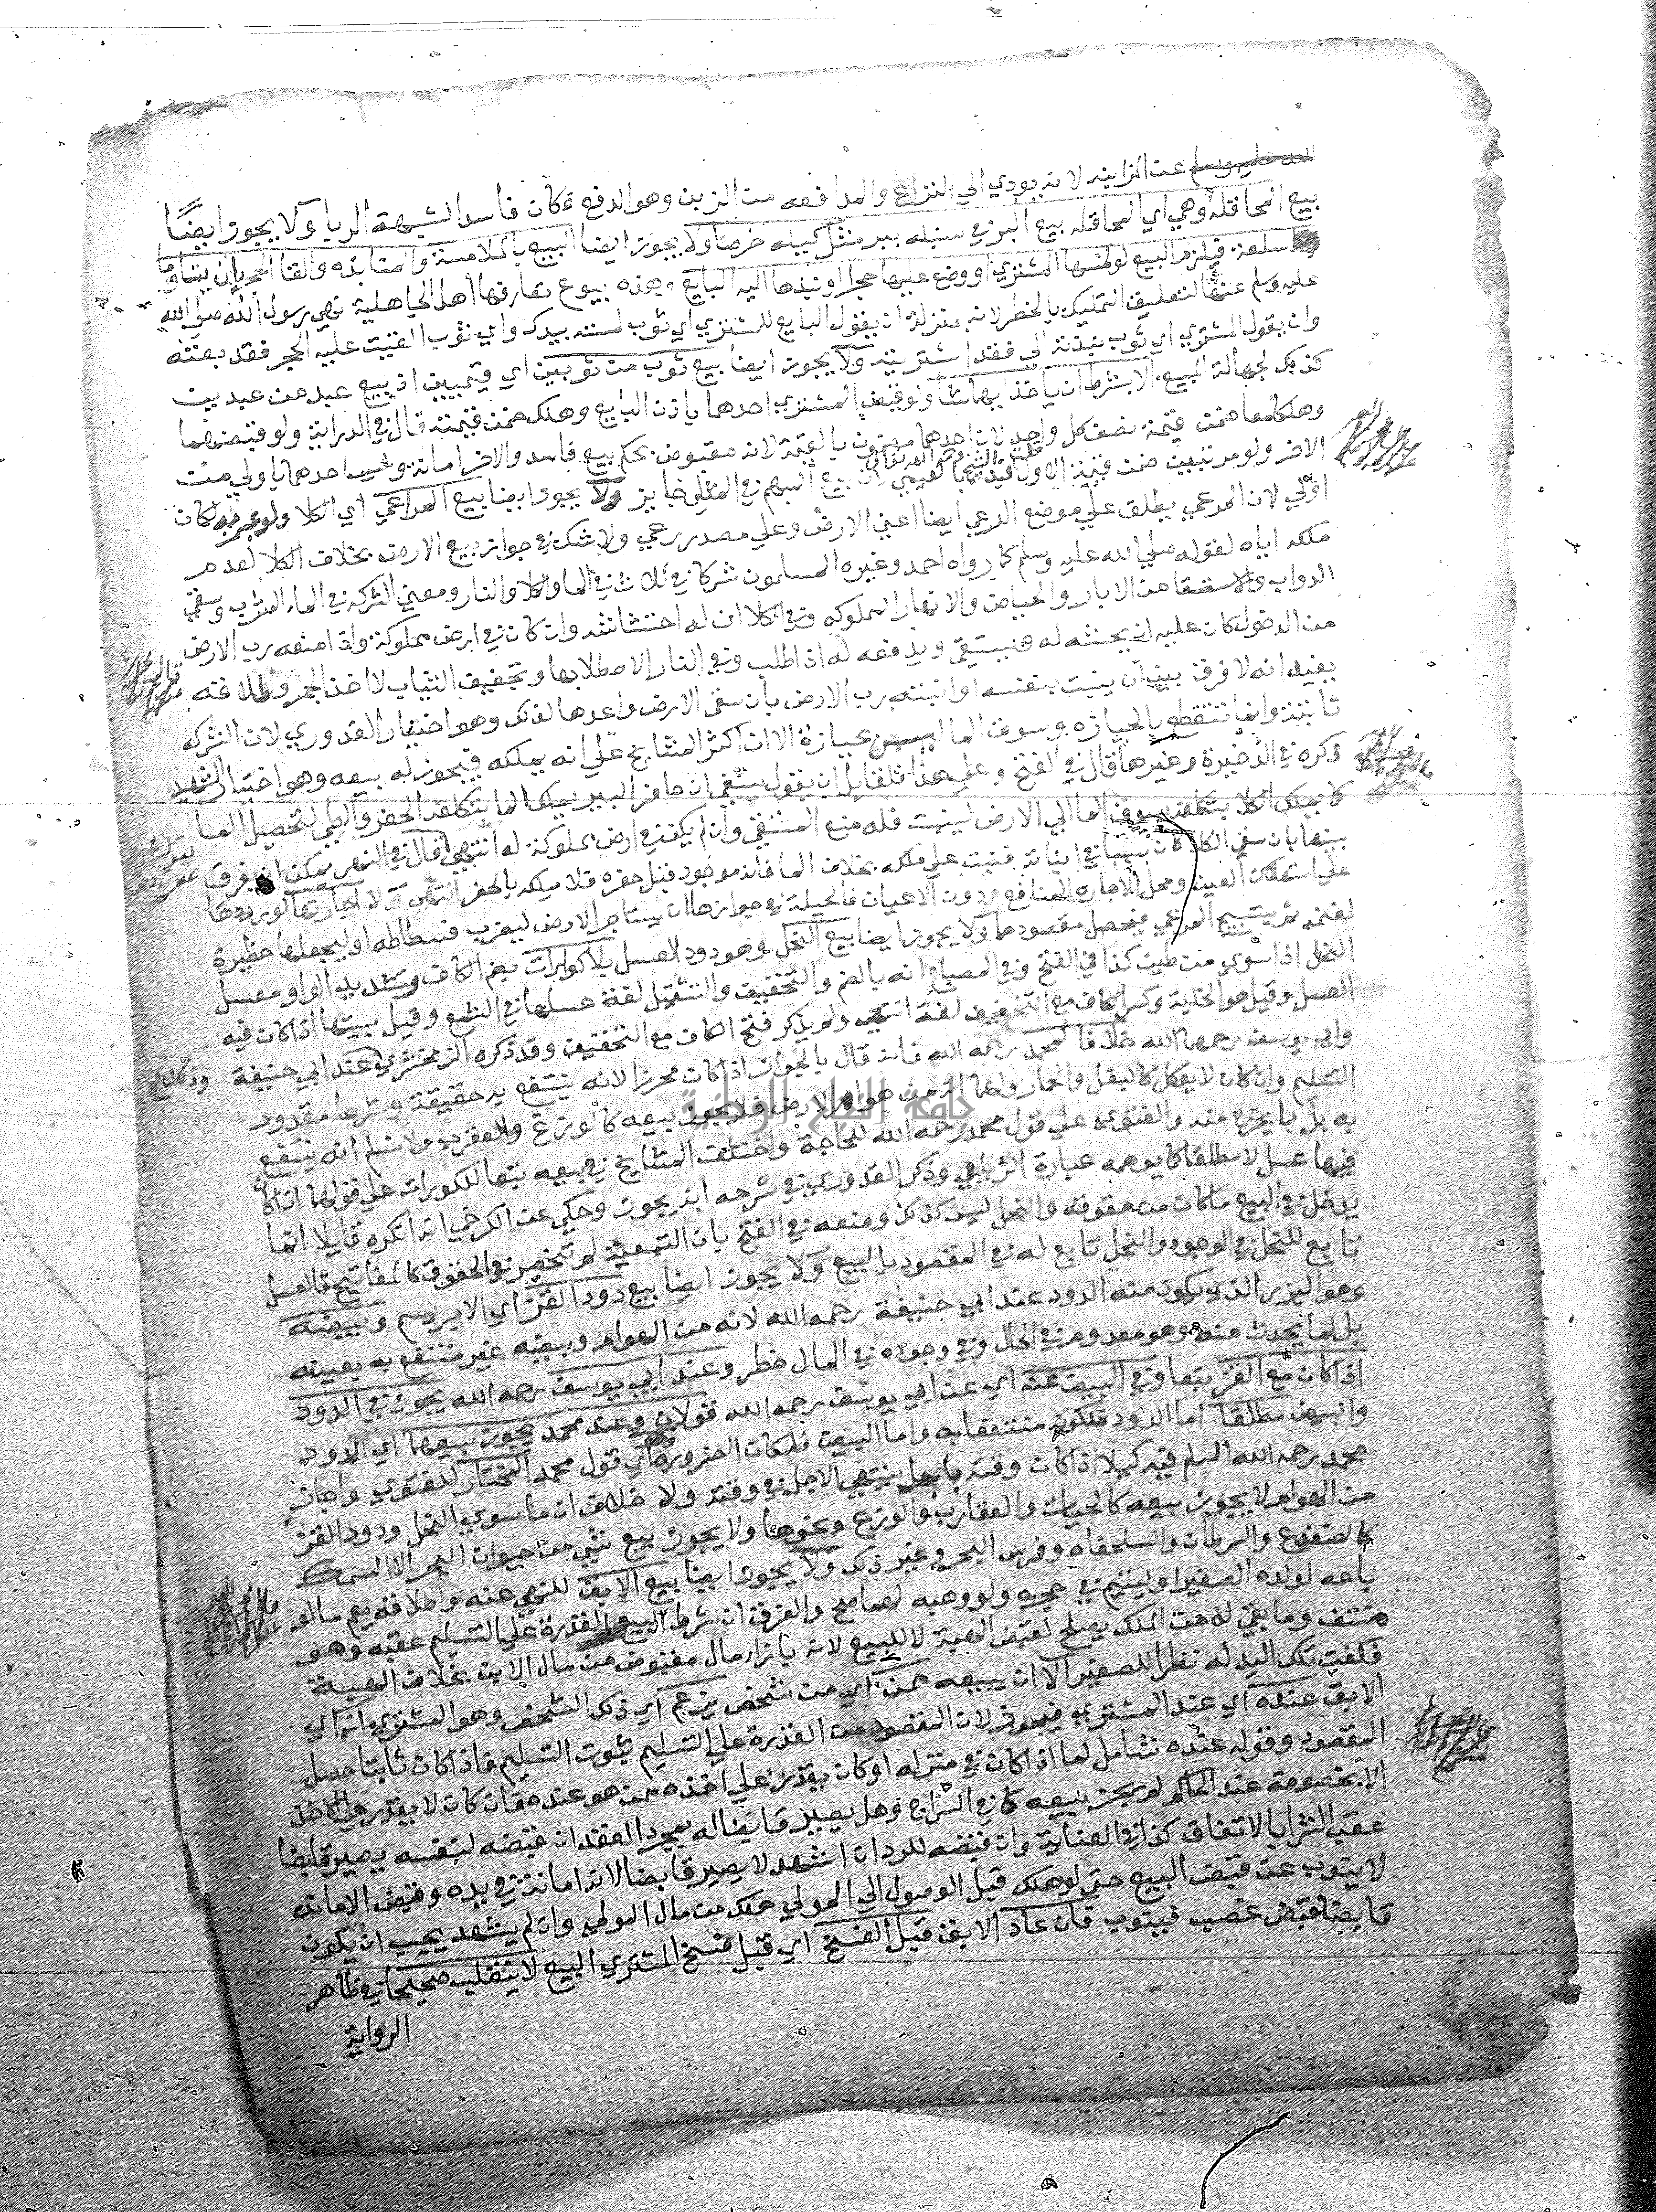 الله عليه وسلم عن المزابنه لانه يودي الي النزاع والمدافعه من الزبن وهو الدفع فكان فاسدا لشبهة الربا ولا يجوز ايضًا
بيع المحاقلة وهي اي المحاقله بيع البر في سنبله ببر مثل كيله خرصا ولا يجوز ايضا البيع بالملامسة والمنابذه والقا الحجر بان يتساوما
سلعة فيلزم البيع لو لمسها المشتري او وضع عليها حجرا او نبذها اليه البايع وهذه بيوع تعارفها اهل الجاهلية نهي رسول الله صلي الله
عليه وسلم عنها لتعليق التمليك بالخطر لانه بمنزلة ان يقول البايع للمشتري اي ثوب لمسته بيدك واي ثوب القيت عليه الحجر فقد بعته
وان يقول المشتري اي ثوب نبذته الي فقد اشتريته ولا يجوز ايضا بيع ثوب من ثوبين اي قيميين اذ بيع عبد من عبدين
كذلك لجهالة المبيع الا بشرط ان ياخذ ايهما شا ولو قبض المشتري احدهما باذن البايع وهلك ضمن قيمته قال في الدراية ولو قبضهما
وهلكا معا ضمن قيمة نصف كل واحد لان احدهما مضمون بالقيمة لانه مقبوض بحكم بيع فاسد والاخر امانة وليس احدهما باولي من
الاخر ولو مرتبين ضمن قيمة الاول بيع المبهم في المثلي جايز ولا يجوز ايضا بيع المراعي اي الكلا
اولي لان المرعي يطلق علي موضع الرعي ايضا اعني الارض وعلي مصدر رعي ولا شك في جواز بيع الارض بخلاف الكلا لعدم
ملكه اياه لقوله صلي الله عليه وسلم كما رواه احمد وغيره المسلمون شركا في ثلاث في الما والكلا والنار ومعني الشركه في الماء الشرب وسقي
الدواب والاستقا من الابار والحياض والانهار المملوكه وفي الكلا ان له احتشاشه وان كان في ارض مملوكة واذا منعه رب الارض
من الدخول كان عليه ان يحتشه له ويدفعه له اذا طلب وفي النار الاصطلا بها وتجفيف الثياب لا اخذ الجمر واطلاقه
يفيد انه لا فرق بين ان ينبت بنفسه او انبته رب الارض بان سقي الارض واعدها لذلك وهو اختيار القدوري لان الشركه
ثابتة وانما تنقطع بالحيازه وسوق الما ليس بحيازة الا ان اكثر المشايخ علي انه يملكه فيجوز له بيعه وهو اختيار الشهيد
ذكره في الذخيرة وغيرها قال في الفتح وعلي هذا فلقايل ان يقول ينبغي ان حافر البير يملك الما بتكلفه الحفر والطي لتحصيل الما
كما يملك الكلا بتكلفه سوق الما الي الارض لينبت فله منع المستقي وان لم يكن في ارض مملوكة له انتهي قال في النهر يمكن ان يفرق
بينهما بان سقي الكلا كان سببا في انباته فنبت علي ملكه بخلاف الما فانه موجود قبل حفره فلا يملكه بالحفر انتهي ولا اجارتها لورودها
علي استهلاك العين ومحل الاجاره المنافع دون الاعيان فالحيلة في جوازها ان يستاجر الارض ليضرب فسطاطه او ليجعلها حظيرة
لغنمه ثم يستبيح المرعي فيحصل مقصودهما ولا يجوز ايضا بيع النحل وهو دود العسل بلا كوارات بضم الكاف وتشديد الواو معسل
النحل اذا سوي من طين كذا في الفتح وفي المصباح انه بالضم والتخفيف والتثقيل لغة عسلها في الشمع وقيل بيتها اذا كان فيه
العسل وقيل هو الخلية وكسر الكاف مع التخفيف لغة انتهي ولم يذكر فتح الكاف مع التخفيف وقد ذكره الزمخشري عند ابي حنيفة وذلك
وابي يوسف رحمهما الله خلافا لمحمد رحمه الله فانه قال بالجواز اذا كان محرزا لانه ينتفع به حقيقة وشرعا مقدور
التسليم وان كان لا يوكل كالبغل والحمار ولهما انه من هوام الارض فلا يجوز بيعه كالوزغ والعقرب ولا نسلم انه ينتفع
به بل بما يخرج منه والفتوي علي قول محمد رحمه الله للحاجة واختلف المشايخ في بيعه تبعا للكورات علي قولهما اذا كان
فيها عسل لا مطلقا كما يوهمه عبارة الزيلعي وذكر القدوري في شرحه انه يجوز وحكي عن الكرخي انه انكره قايلا انما
يدخل في البيع ما كان من حقوقه والنحل ليس كذلك ومنعه في الفتح بان التبعية لم تنحصر في الحقوق كالمفاتيح فالعسل
تابع للنحل في الوجود والنحل تابع له في المقصود بالبيع ولا يجوز ايضا بيع دود القز اي الابريسم وبيضه
وهو البزر الذي يكون منه الدود عند ابي حنيفة رحمه الله لانه من الهوام وبيضه غير منتفع به بعينه
بل لما يحدث منه وهو معدوم في الحال وفي وجوده في المال خطر وعند ابي يوسف رحمه الله يجوز في الدود
اذا كان مع القز تبعا وفي البيض عنه اي عن ابي يوسف رحمه الله قولان وعند محمد يجوز بيعهما اي الدود
والبيض مطلقا اما الدود فلكونه منتفعا به واما البيض فلمكان الضروره وهو اي قول محمد المختار للفتوي واجاز
محمد رحمه الله السلم فيه كيلا اذا كان وقته باجل ينتهي الاجل في وقته ولا خلاف ان ما سوي النحل ودود القز
من الهوام لا يجوز بيعه كالحيات والعقارب والوزغ ونحوها ولا يجوز بيع شي من حيوان البحر الا السمك
كالضفدع والسرطان والسلحفاه وفرس البحر وغير ذلك ولا يجوز ايضا بيع الابق للنهي عنه واطلاقه يعم ما لو
باعه لولده الصغير او ليتيم في حجره ولو وهبه لهما صح والفرق ان شرط البيع القدرة علي التسليم عقبه وهو
منتف وما بقي له من الملك يصلح لقبض الهبة لا للبيع لانه بازاء مال مقبوض من مال الابن بخلاف الهبة
فكفت تلك اليد له نظرا للصغير الا ان يبيعه ممن اي من شخص يزعم اي ذلك الشخص وهو المشتري انه اي
الابق عنده اي عند المشتري فيجوز لان المقصود من القدرة علي التسليم ثبوت التسليم فاذا كان ثابتا حصل
المقصود وقوله عنده شامل لما اذا كان في منزله او كان يقدر علي اخذه ممن هو عنده فان كان لا يقدر علي الاخذ
الا بخصومة عند الحاكم لم يجز بيعه كما في السراج وهل يصير قابضا له بمجرد العقد ان قبضه لنفسه يصير قابضا
عقب الشرا بالاتفاق كذا في العناية وان قبضه للرد ان اشهد لا يصير قابضا لانه امانة في يده وقبض الامانة
لا ينوب عن قبض البيع حتي لو هلك قبل الوصول الي المولي هلك من مال المولي وان لم يشهد يجب ان يكون
قابضا قبض غصب فينوب فان عاد الابق قبل الفسخ اي قبل فسخ المشتري البيع لا ينقلب صحيحا في ظاهر
الرواية